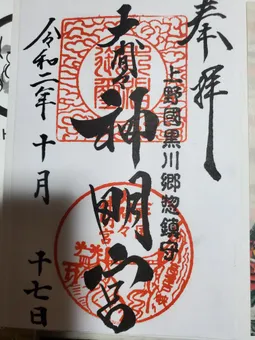 奉拝
上野國黒川郷惣鎮守
大間々
神明宮
令和二年十月
十七日